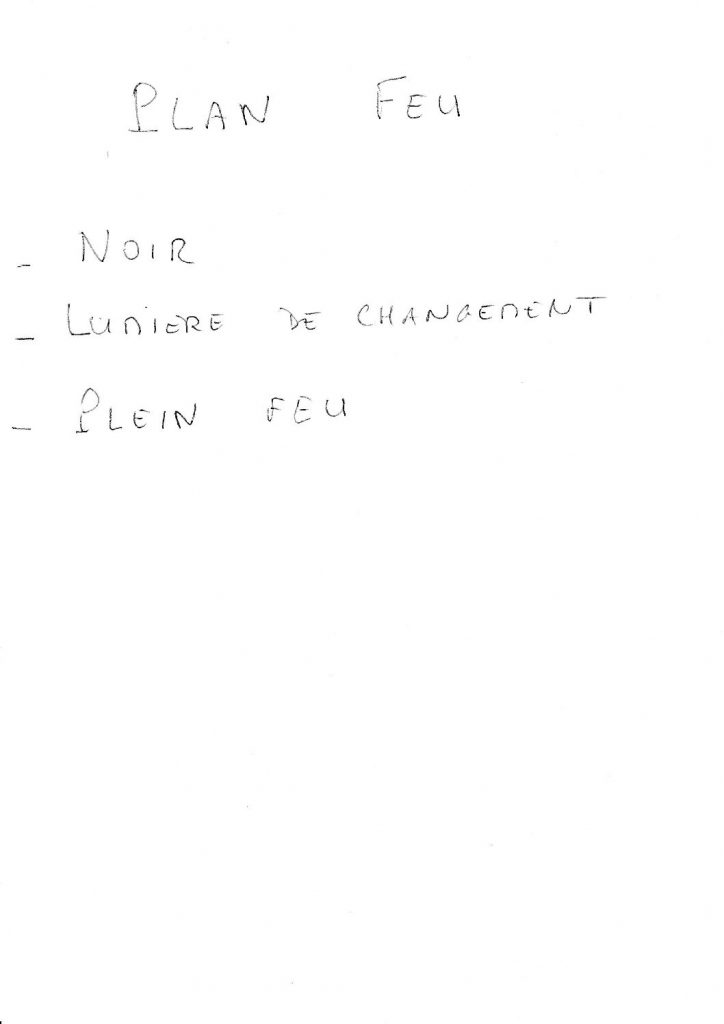 PLAN FEU
- NOIR
- LUMIERE DE CHANGEMENT
- PLEIN FEU